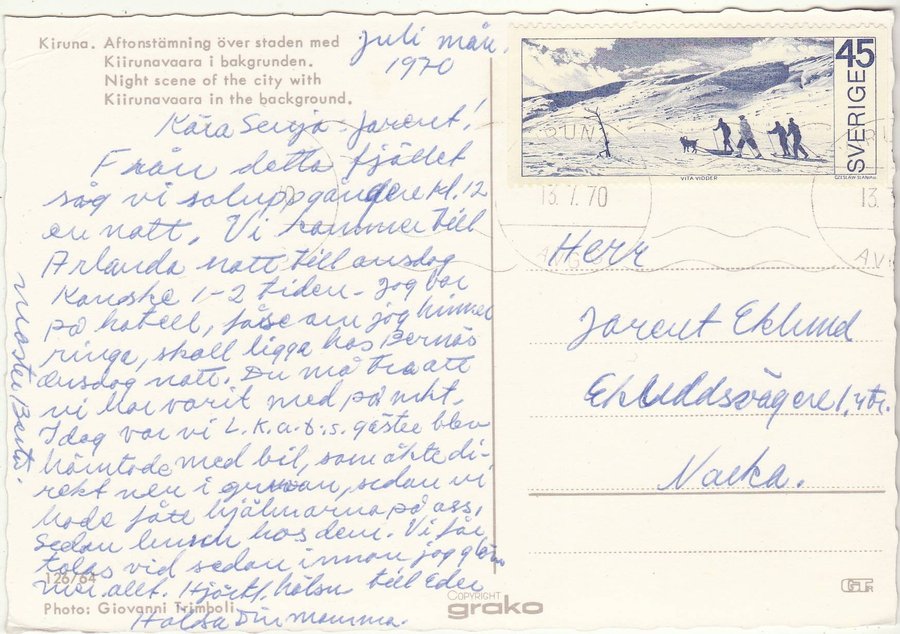 Kiruna. Aftonstämning över staden med
Kiirunavaara i bakgrunden.
Night scene of the city with
Kiirunavaara in the background.
juli mån.
1970
Kära Senja - Jarent!
Från detta fjället
såg vi soluppgången kl. 12
en natt. Vi kommer till
Arlanda natt till onsdag
Kanske 1-2 tiden - jag bor
på hotell, få se om jag hinner
ringa, skall ligga hos Bernås
onsdag natt. Du må tro att
vi har varit med på mkt.
Idag var vi L.K.a.b:s. gäster blev
hämtade med bil, som åkte di-
rekt ner i gruvan, sedan vi
hade fått hjälmarna på oss,
Sedan lunch hos dem. Vi får
talas vid sedan innan jag glöm
mer allt. Hjärtl. hälsn till Eder
Hälsa Din mamma.
Moster
SVERIGE 45
VITA VIDDER
CZESLAW SLANIA SC
13.7.70
13.
AV
Herr
Jarent Eklund
Ekuddsvägen 1, 4 tr.
Nacka.
126/64
Photo: Giovanni Trimboli
COPYRIGHT
grako